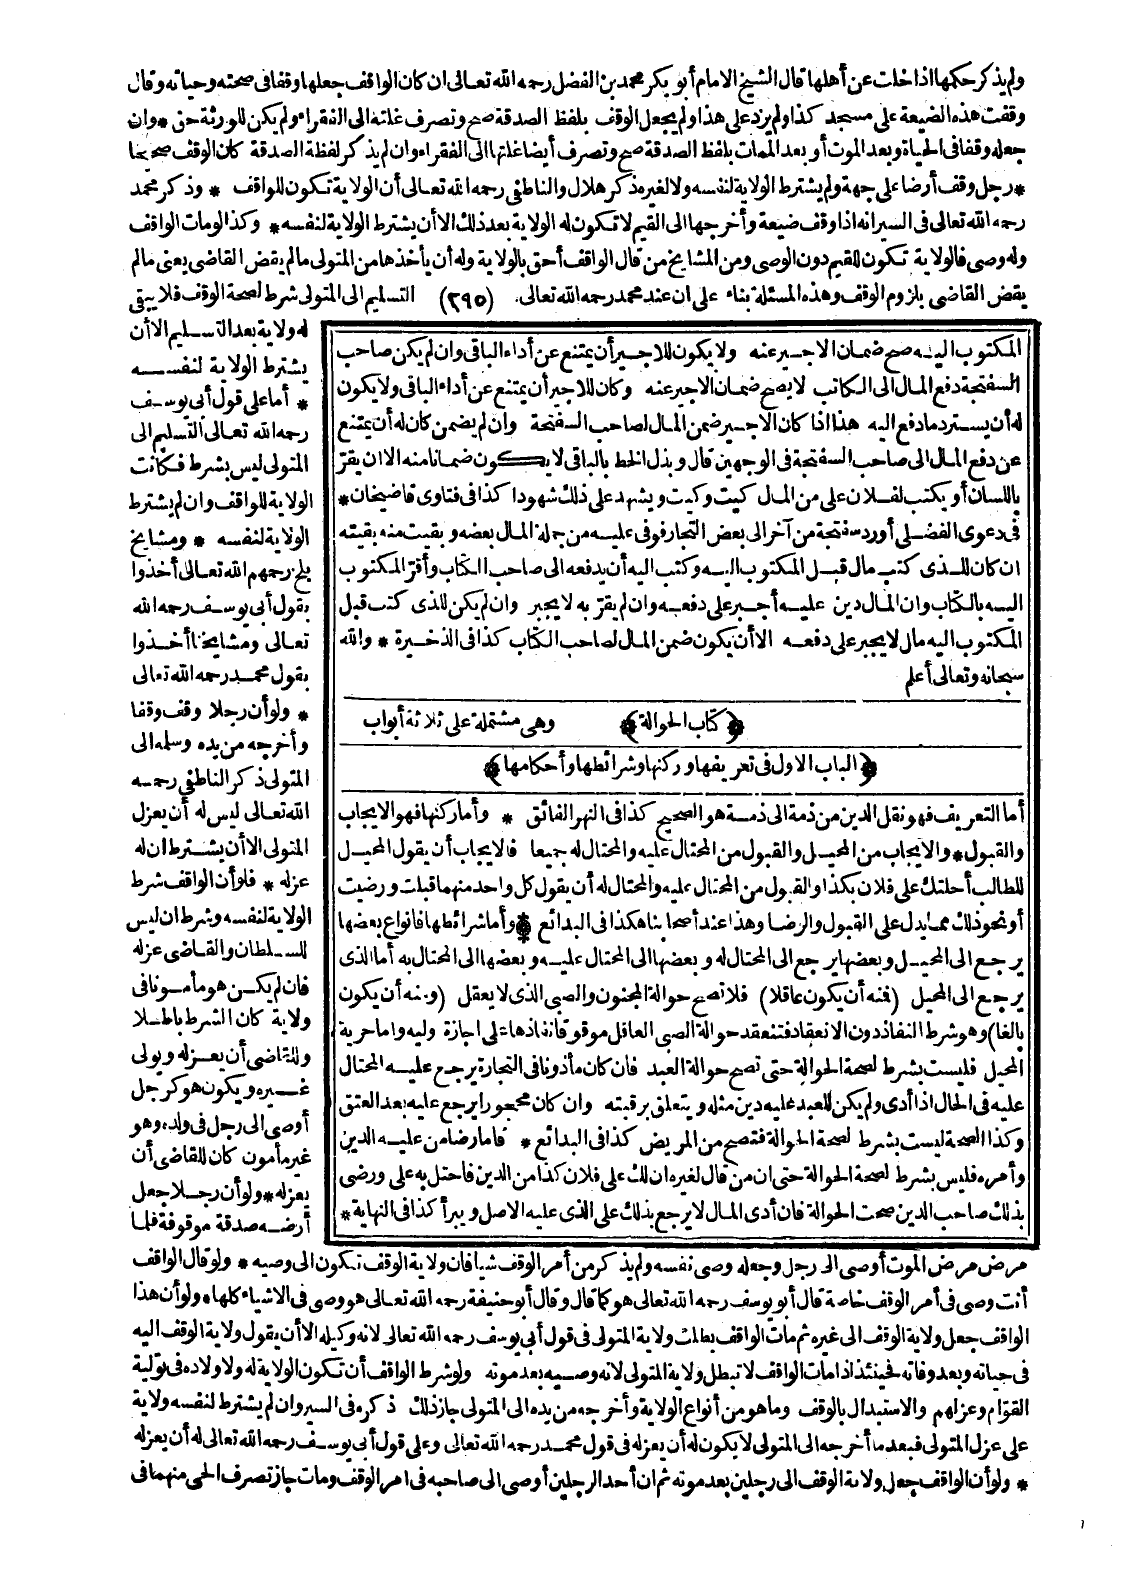 ولم يذكر حكمها اذا خلت عن أهلها قال الشيخ الامام أبو بكر محمد بن الفضل رحمه الله تعالى ان كان الواقف جعلها وقفا فى صحته وحياته وقال
وقفت هذه الضيعة على مسجد كذا ولم يزد على هذا ولم يجعل الوقف بلفظ الصدقة صح وتصرف غلته الى الفقراء ولم يكن للورثة حق * وان
جعله وقفا فى الحياة وبعد الموت أو بعد الممات بلفظ الصدقة صح وتصرف أيضا غلتها الى الفقراء وان لم يذكر لفظة الصدقة كان الوقف صحيحا
* رجل وقف أرضا على جهة ولم يشترط الولاية لنفسه ولا لغيره ذكر هلال والناطفى رحمه الله تعالى أن الولاية تكون للواقف * وذكر محمد
رحمه الله تعالى فى السير انه اذا وقف ضيعة وأخرجها الى القيم لا تكون له الولاية بعد ذلك الا أن يشترط الولاية لنفسه * وكذا لو مات الواقف
وله وصى فالولاية تكون للقيم دون الوصى ومن المشايخ من قال الواقف أحق بالولاية وله أن يأخذها من المتولى ما لم يقض القاضى يعنى مالم
يقض القاضى بلزوم الوقف وهذه المسئلة بناء على ان عند محمد رحمه الله تعالى (٢٩٥) التسليم الى المتولى شرط لصحة الوقف فلا يبقى
له ولاية بعد التسليم الا أن
يشترط الولاية لنفسه
* أما على قول أبى يوسف
رحمه الله تعالى التسليم الى
المتولى ليس بشرط فكانت
الولاية للواقف وان لم يشترط
الولاية لنفسه * ومشايخ
بلخ رحمهم الله تعالى أخذوا
بقول أبى يوسف رحمه الله
تعالى ومشايخنا أخذوا
بقول محمد رحمه الله تعالى
* ولو أن رجلا وقف وقفا
وأخرجه من يده وسلمه الى
المتولى ذكر الناطفى رحمه
الله تعالى ليس له أن يعزل
المتولى الا أن يشترط ان له
عزله * فلو أن الواقف شرط
الولاية لنفسه وشرط ان ليس
للسلطان والقاضى عزله
فان لم يكن هو مأمونا فى
ولاية كان الشرط باطلا
وللقاضى أن يعزله ويولى
غيره ويكون هو كرجل
أوصى الى رجل فى ولده وهو
غير مأمون كان للقاضى أن
يعزله * ولو أن رجلا جعل
أرضه صدقة موقوفة فلما
المكتوب اليه صح ضمان الاجير عنه ولا يكون للاجير أن يمتنع عن أداء الباقى وان لم يكن صاحب
السفتجة دفع المال الى الكاتب لا يصح ضمان الاجير عنه وكان للاجير أن يمتنع عن أداء الباقى ولا يكون
له أن يسترد ما دفع اليه هذا اذا كان الاجير ضمن المال لصاحب السفتجة وان لم يضمن كان له أن يمتنع
عن دفع المال الى صاحب السفتجة فى الوجهين قال وبذل الخط بالباقى لا يكون ضمانا منه الا ان يقرّ
باللسان أو يكتب لفلان على من المال كيت وكيت ويشهد على ذلك شهودا كذا فى فتاوى قاضيخان *
فى دعوى الفضلى أورد سفتجة من آخر الى بعض التجار فوفى عليه من جملة المال بعضه وبقيت منه بقيته
ان كان للذى كتب مال قبل المكتوب اليه وكتب اليه أن يدفعه الى صاحب الكتاب وأقرّ المكتوب
اليه بالكتاب وان المال دين عليه أجبر على دفعه وان لم يقرّ به لا يجبر وان لم يكن للذى كتب قبل
المكتوب اليه مال لا يجبر على دفعه الا أن يكون ضمن المال لصاحب الكتاب كذا فى الذخيرة * والله
سبحانه وتعالى أعلم
﴿كتاب الحوالة﴾ وهى مشتملة على ثلاثة أبواب
﴿الباب الاول فى تعريفها وركنها وشرائطها وأحكامها﴾
أما التعريف فهو نقل الدين من ذمة الى ذمة هو الصحيح كذا فى النهر الفائق * وأما ركنها فهو الايجاب
والقبول * والايجاب من المحيل والقبول من المحتال عليه والمحتال له جميعا فالايجاب أن يقول المحيل
للطالب أحلتك على فلان بكذا والقبول من المحتال عليه والمحتال له أن يقول كل واحد منهما قبلت ورضيت
أو نحو ذلك مما يدل على القبول والرضا وهذا عند أصحابنا هكذا فى البدائع * وأما شرائطها فانواع بعضها
يرجع الى المحيل وبعضها يرجع الى المحتال له وبعضها الى المحتال عليه وبعضها الى المحتال به أما الذى
يرجع الى المحيل (فمنه أن يكون عاقلا) فلا تصح حوالة المجنون والصبى الذى لا يعقل (ومنه أن يكون
بالغا) وهو شرط النفاذ دون الانعقاد فتنعقد حوالة الصبى العاقل موقوفا نفاذها على اجازة وليه واما حرية
المحيل فليست بشرط لصحة الحوالة حتى تصح حوالة العبد فان كان مأذونا فى التجارة يرجع عليه المحتال
عليه فى الحال اذا أدى ولم يكن للعبد عليه دين مثله ويتعلق برقبته وان كان محجورا يرجع عليه بعد العتق
وكذا الصحة ليست بشرط لصحة الحوالة فتصح من المريض كذا فى البدائع * فاما رضا من عليه الدين
وأمره فليس بشرط لصحة الحوالة حتى ان من قال لغيره ان لك على فلان كذا من الدين فاحتل به على ورضى
بذلك صاحب الدين صحت الحوالة فان أدى المال لا يرجع بذلك على الذى عليه الاصل ويبرأ كذا فى النهاية *
مرض مرض الموت أوصى الى رجل وجعله وصى نفسه ولم يذكر من أمر الوقف شيأ فان ولاية الوقف تكون الى وصيه * ولو قال الواقف
أنت وصى فى أمر الوقف خاصة قال أبو يوسف رحمه الله تعالى هو كما قال وقال أبو حنيفة رحمه الله تعالى هو وصى فى الاشياء كلها * ولو أن هذا
الواقف جعل ولاية الوقف الى غيره ثم مات الواقف بطلت ولاية المتولى فى قول أبى يوسف رحمه الله تعالى لانه وكيله الا أن يقول ولاية الوقف اليه
فى حياته وبعد وفاته فحينئذ اذا مات الواقف لا تبطل ولاية المتولى لانه وصيه بعد موته ولو شرط الواقف أن تكون الولاية له ولاولاده فى تولية
القوّام وعزلهم والاستبدال بالوقف وما هو من أنواع الولاية وأخرجه من يده الى المتولى جاز ذلك ذكره فى السير وان لم يشترط لنفسه ولاية
على عزل المتولى فبعد ما أخرجه الى المتولى لا يكون له أن يعزله فى قول محمد رحمه الله تعالى وعلى قول أبى يوسف رحمه الله تعالى له أن يعزله
* ولو أن الواقف جعل ولاية الوقف الى رجلين بعد موته ثم ان أحد الرجلين أوصى الى صاحبه فى امر الوقف ومات جاز تصرف الحى منهما فى